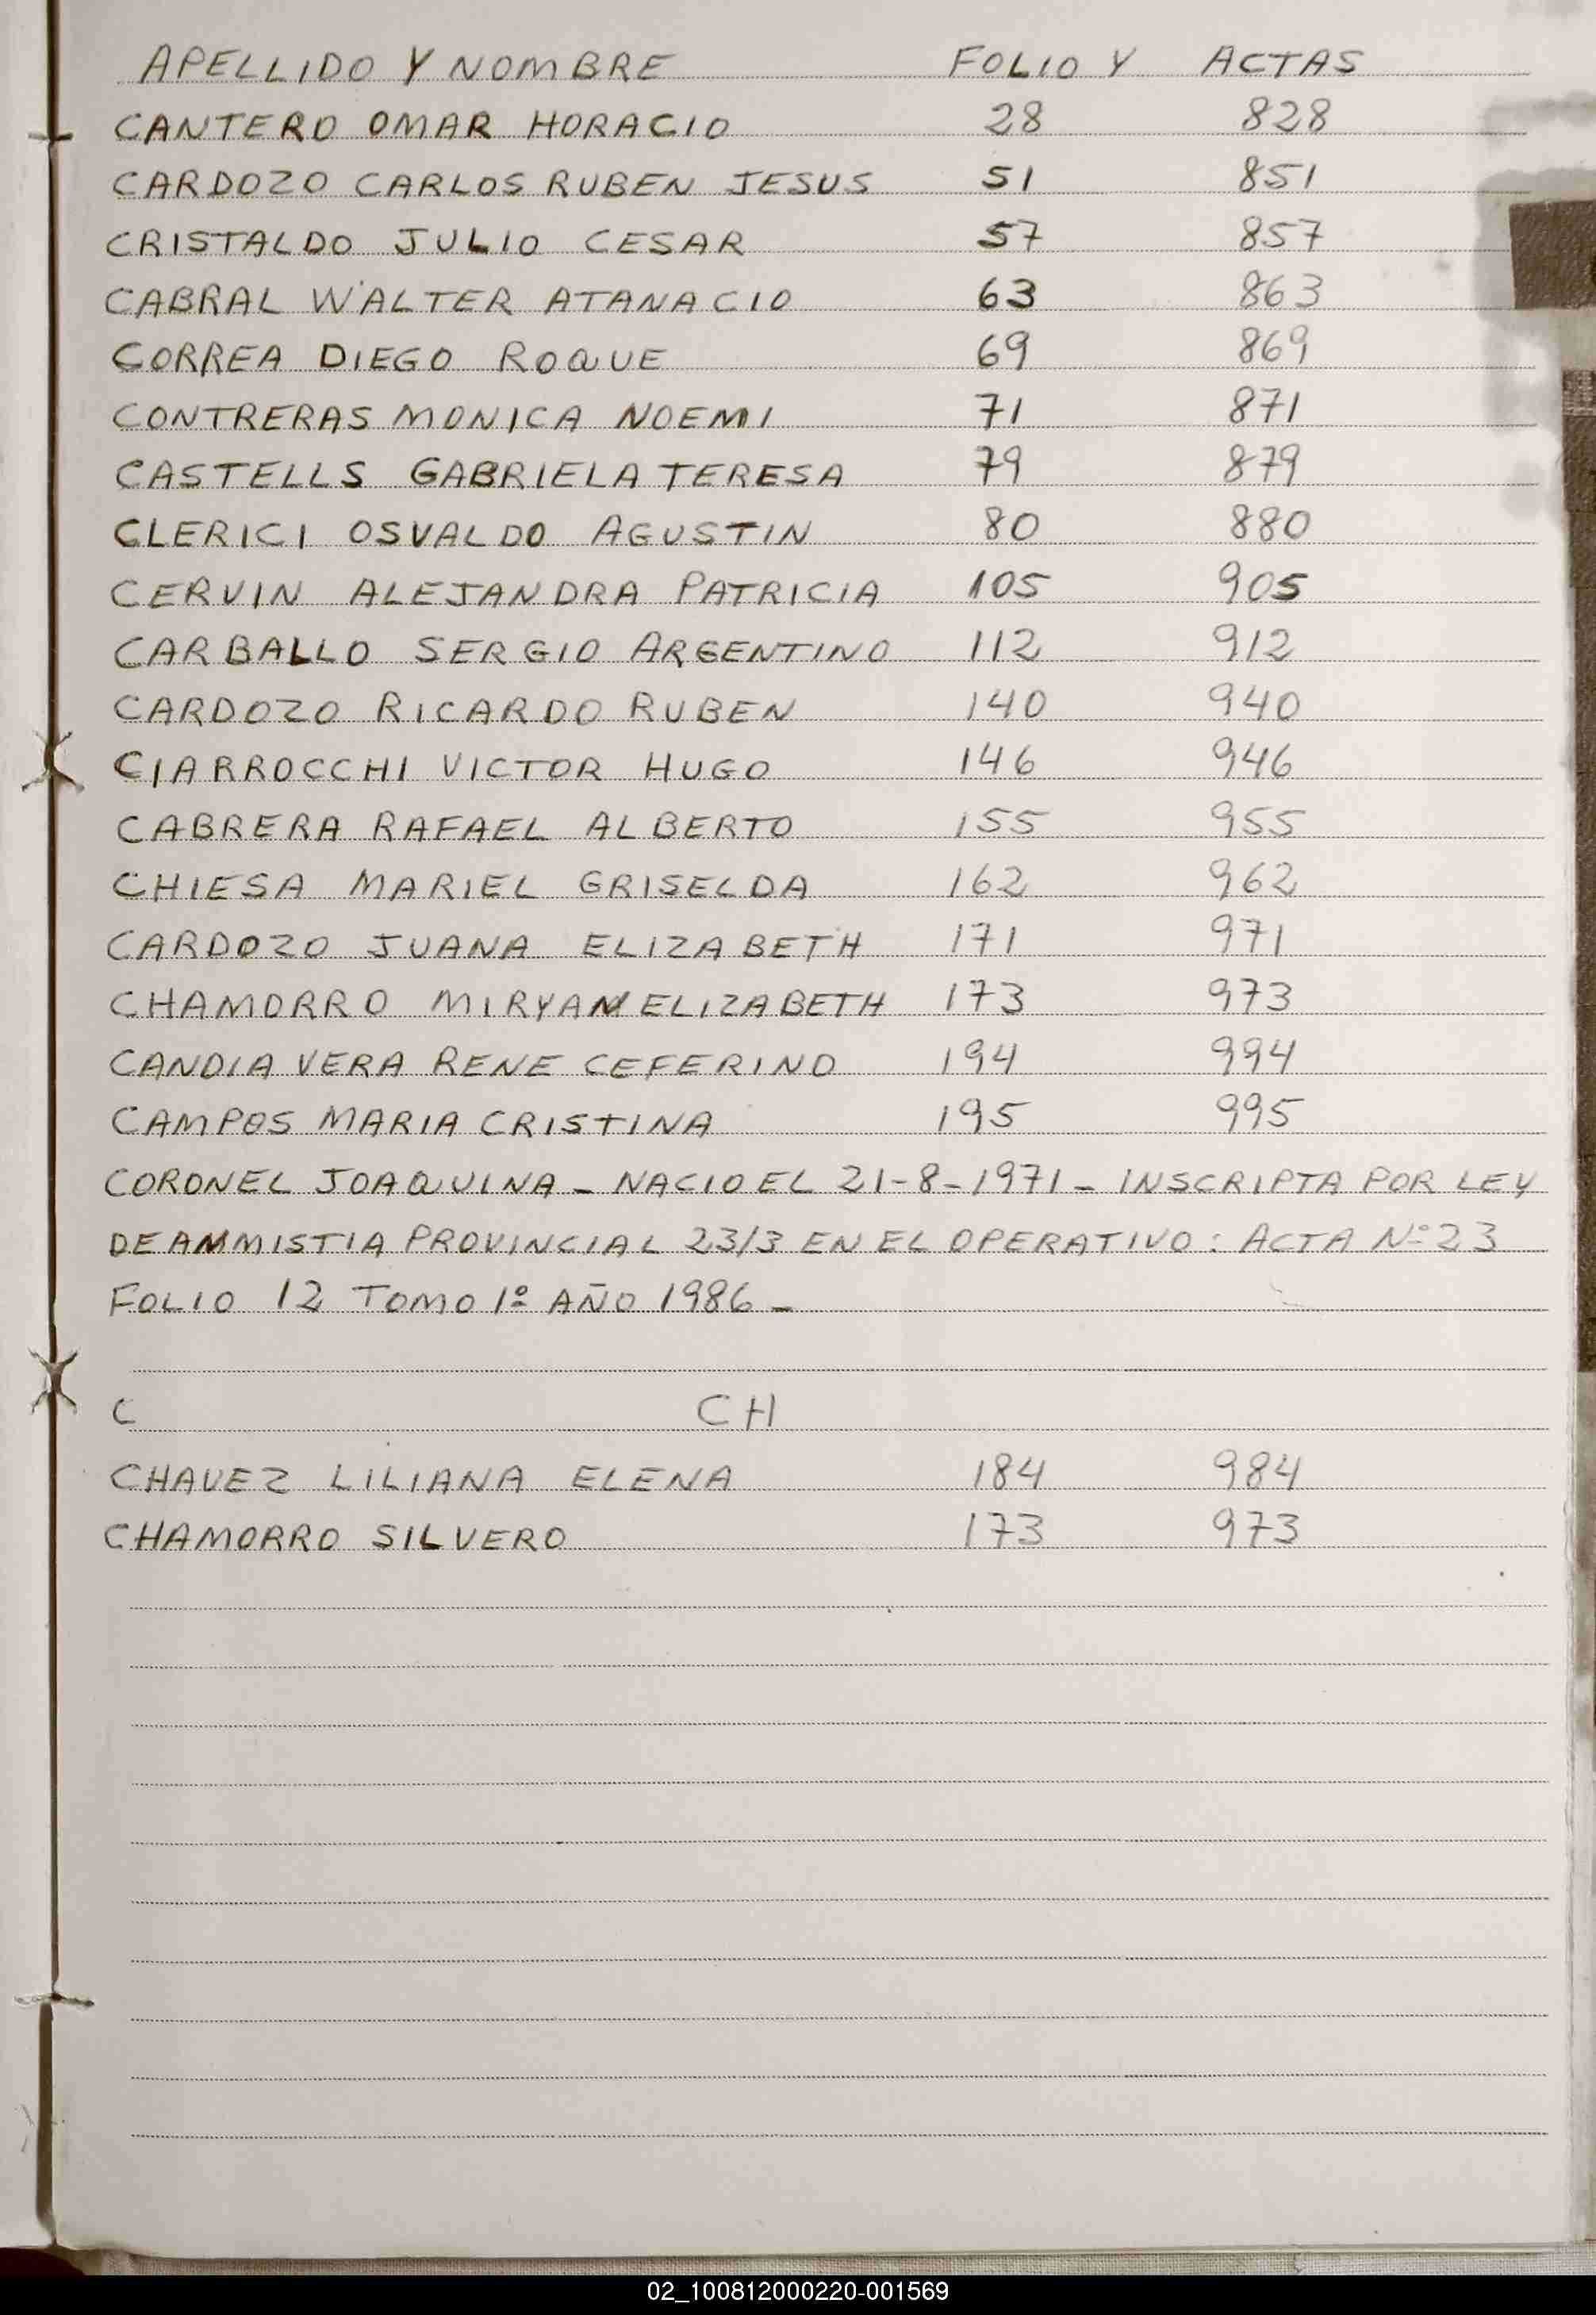 APELLIDO Y NOMBRE FOLIO Y ACTAS
CANTERO OMAR HORACIO 28 828
CARDOZO CARLOS RUBEN JESUS 51 851
CRISTALDO JULIO CESAR 57 857
CABRAL WALTER ATANACIO 63 863
CORREA DIEGO ROQUE 69 869
CONTRERAS MONICA NOEMI 71 871
CASTELLS GABRIELA TERESA 79 879
CLERICI OSVALDO AGUSTIN 80 880
CERVIN ALEJANDRA PATRICIA 105 905
CARBALLO SERGIO ARGENTINO 112 912
CARDOZO RICARDO RUBEN 140 940
CIARROCCHI VICTOR HUGO 146 946
CABRERA RAFAEL ALBERTO 155 955
CHIESA MARIEL GRISELDA 162 962
CARDOZO JUANA ELIZABETH 171 971
CHAMORRO MIRYAM ELIZABETH 173 973
CANDIA VERA RENE CEFERINO 194 994
CAMPOS MARIA CRISTINA 195 995
CORONEL JOAQUINA - NACIO EL 21-8-1971 - INSCRIPTA POR LEY
DE AMMISTIA PROVINCIAL 23/3 EN EL OPERATIVO: ACTA Nº 23
FOLIO 12 TOMO 1º AÑO 1986 -
C CH
CHAVEZ LILIANA ELENA 184 984
CHAMORRO SILVERO 173 973
02_100812000220-001569